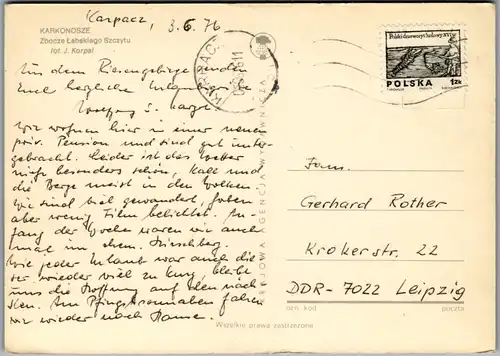 KARKONOSZE
Zbocze Łabskiego Szczytu
fot. J. Korpal
Karpacz, 3.6.76
Aus dem Riesengebirge senden
Euch herzliche Urlaubsgrüße
Wolfgang
Wir wohnen hier in einer neuen
priv. Pension und sind gut unter-
gebracht. Leider ist das Wetter
nicht besonders schön, kalt und
die Berge meist in den Wolken.
Wir sind viel gewandert, haben
aber wenig Film belichtet. An-
fang der Woche waren wir auch
mal im ehem. Hirschberg.
Wie jeder Urlaub war auch die-
ser wieder viel zu kurz, bleibt
uns die Hoffnung auf den näch-
sten. Am Pfingstsonnabend fahren
wir wieder nach Hause.
KRAJOWA AGENCJA WYDAWNICZA
KARPACZ
Polski drzeworyt ludowy XVI w.
POLSKA 1 ZŁ
Fam.
Gerhard Rother
Krokerstr. 22
DDR-7022 Leipzig
ozn. kod
poczta
Wszelkie prawa zastrzeżone